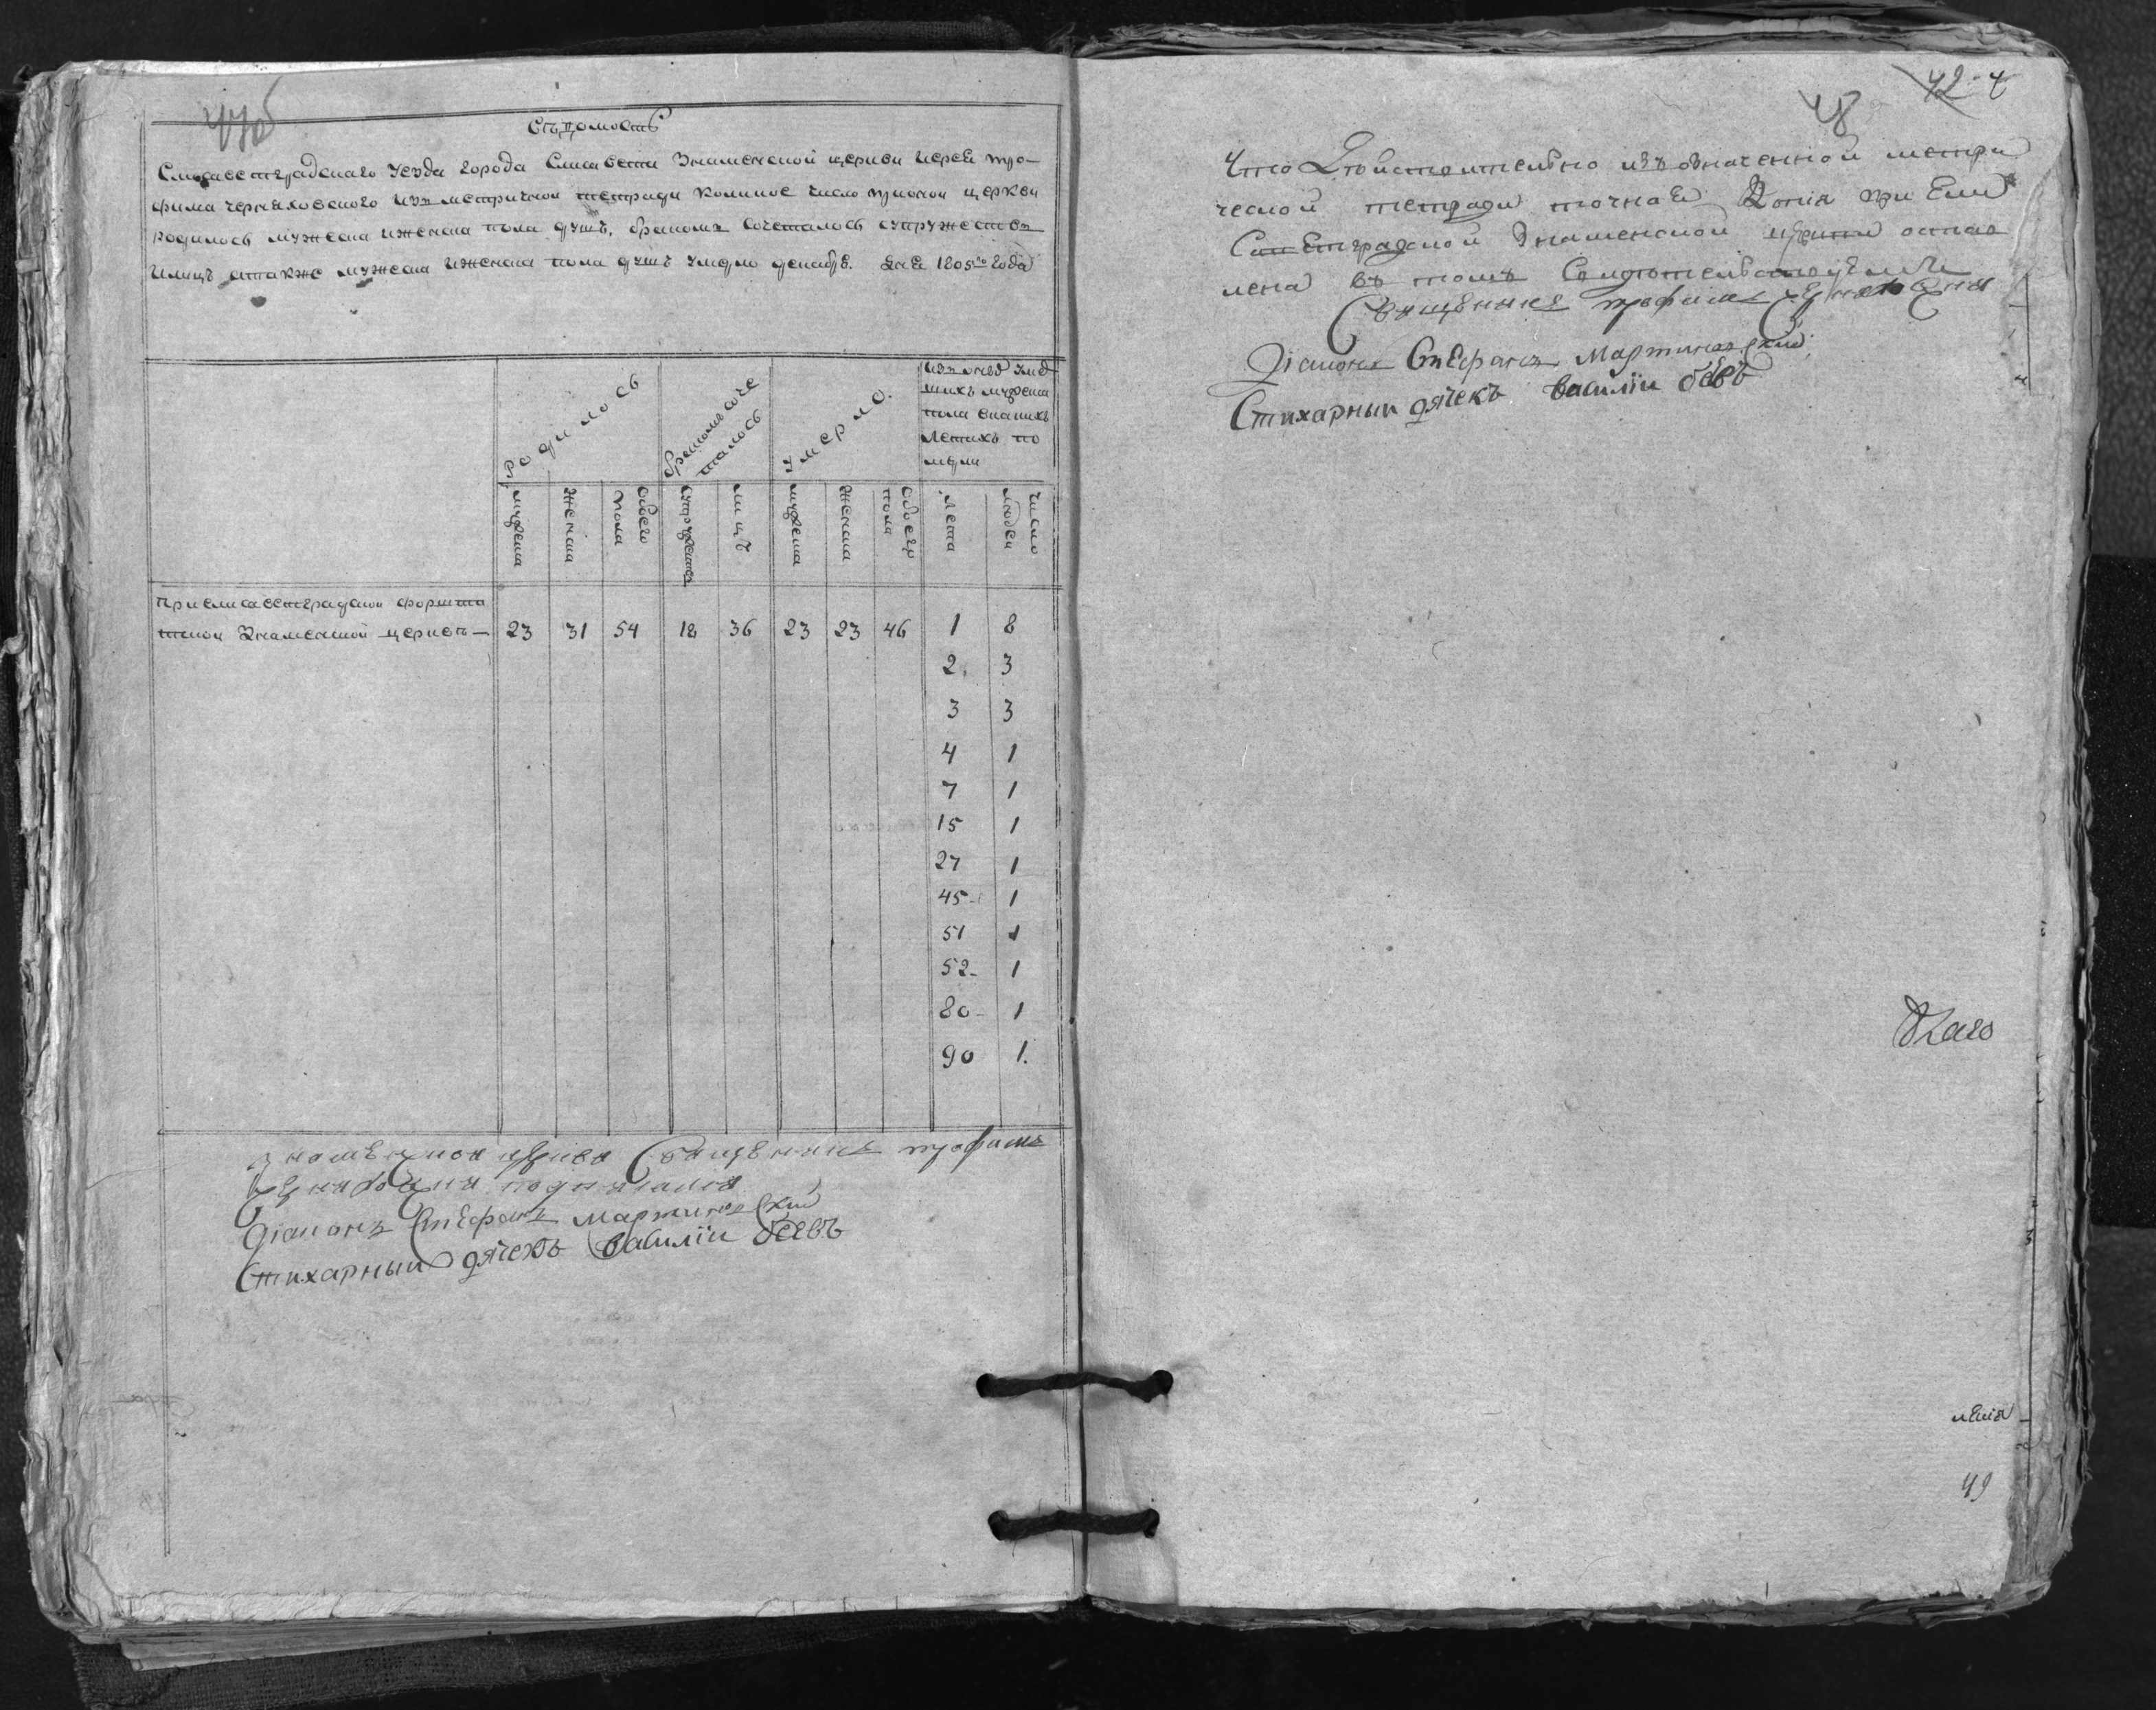 Вѣдомость
Елисаветградскаго уезда города Елисавети Знаменской церкви иерея Тро-
фима Черняховского изъ метричной тетради коликое число прионой церкви
родилось мужеска иженска пола душъ, бракомъ сочеталось супружествъ
илицъ атакже мужеска иженска пола душъ умерло декабря. дня 1805го года
Родилось
бракомъ соче
талось
умерло.
изъ числа умер
шихъ мужеска
пола скаихъ
летихъ по
мерли
мужеска
женска
обоего
пола
супружествъ
лицъ
мужеска
женска
обоего
пола
лета
число
людей
При елисаветградской форшта
тской Знаменской церквѣ — 23 31 54 18 36 23 23 46 1 8
2. 3
3 3
4 1
7 1
15 1
27 1
45- 1
51 1
52- 1
80- 1
90 1.
Знаменской церкви Священникъ трофимъ
Черняховский подписался
Діаконъ Стефанъ Мартиновский
Стихарный дячекъ Василіи бѣевъ
48 42
Что Действительно изъ означенной метри
ческой тетради точная Копія при Ели
Саветградской Знаменской церкви остав
лена въ томъ Свидетельствуемъ
Священникъ трофимъ Черняховский
Діаконъ Стефанъ Мартиновский
Стихарный дячекъ Василіи бѣевъ
49